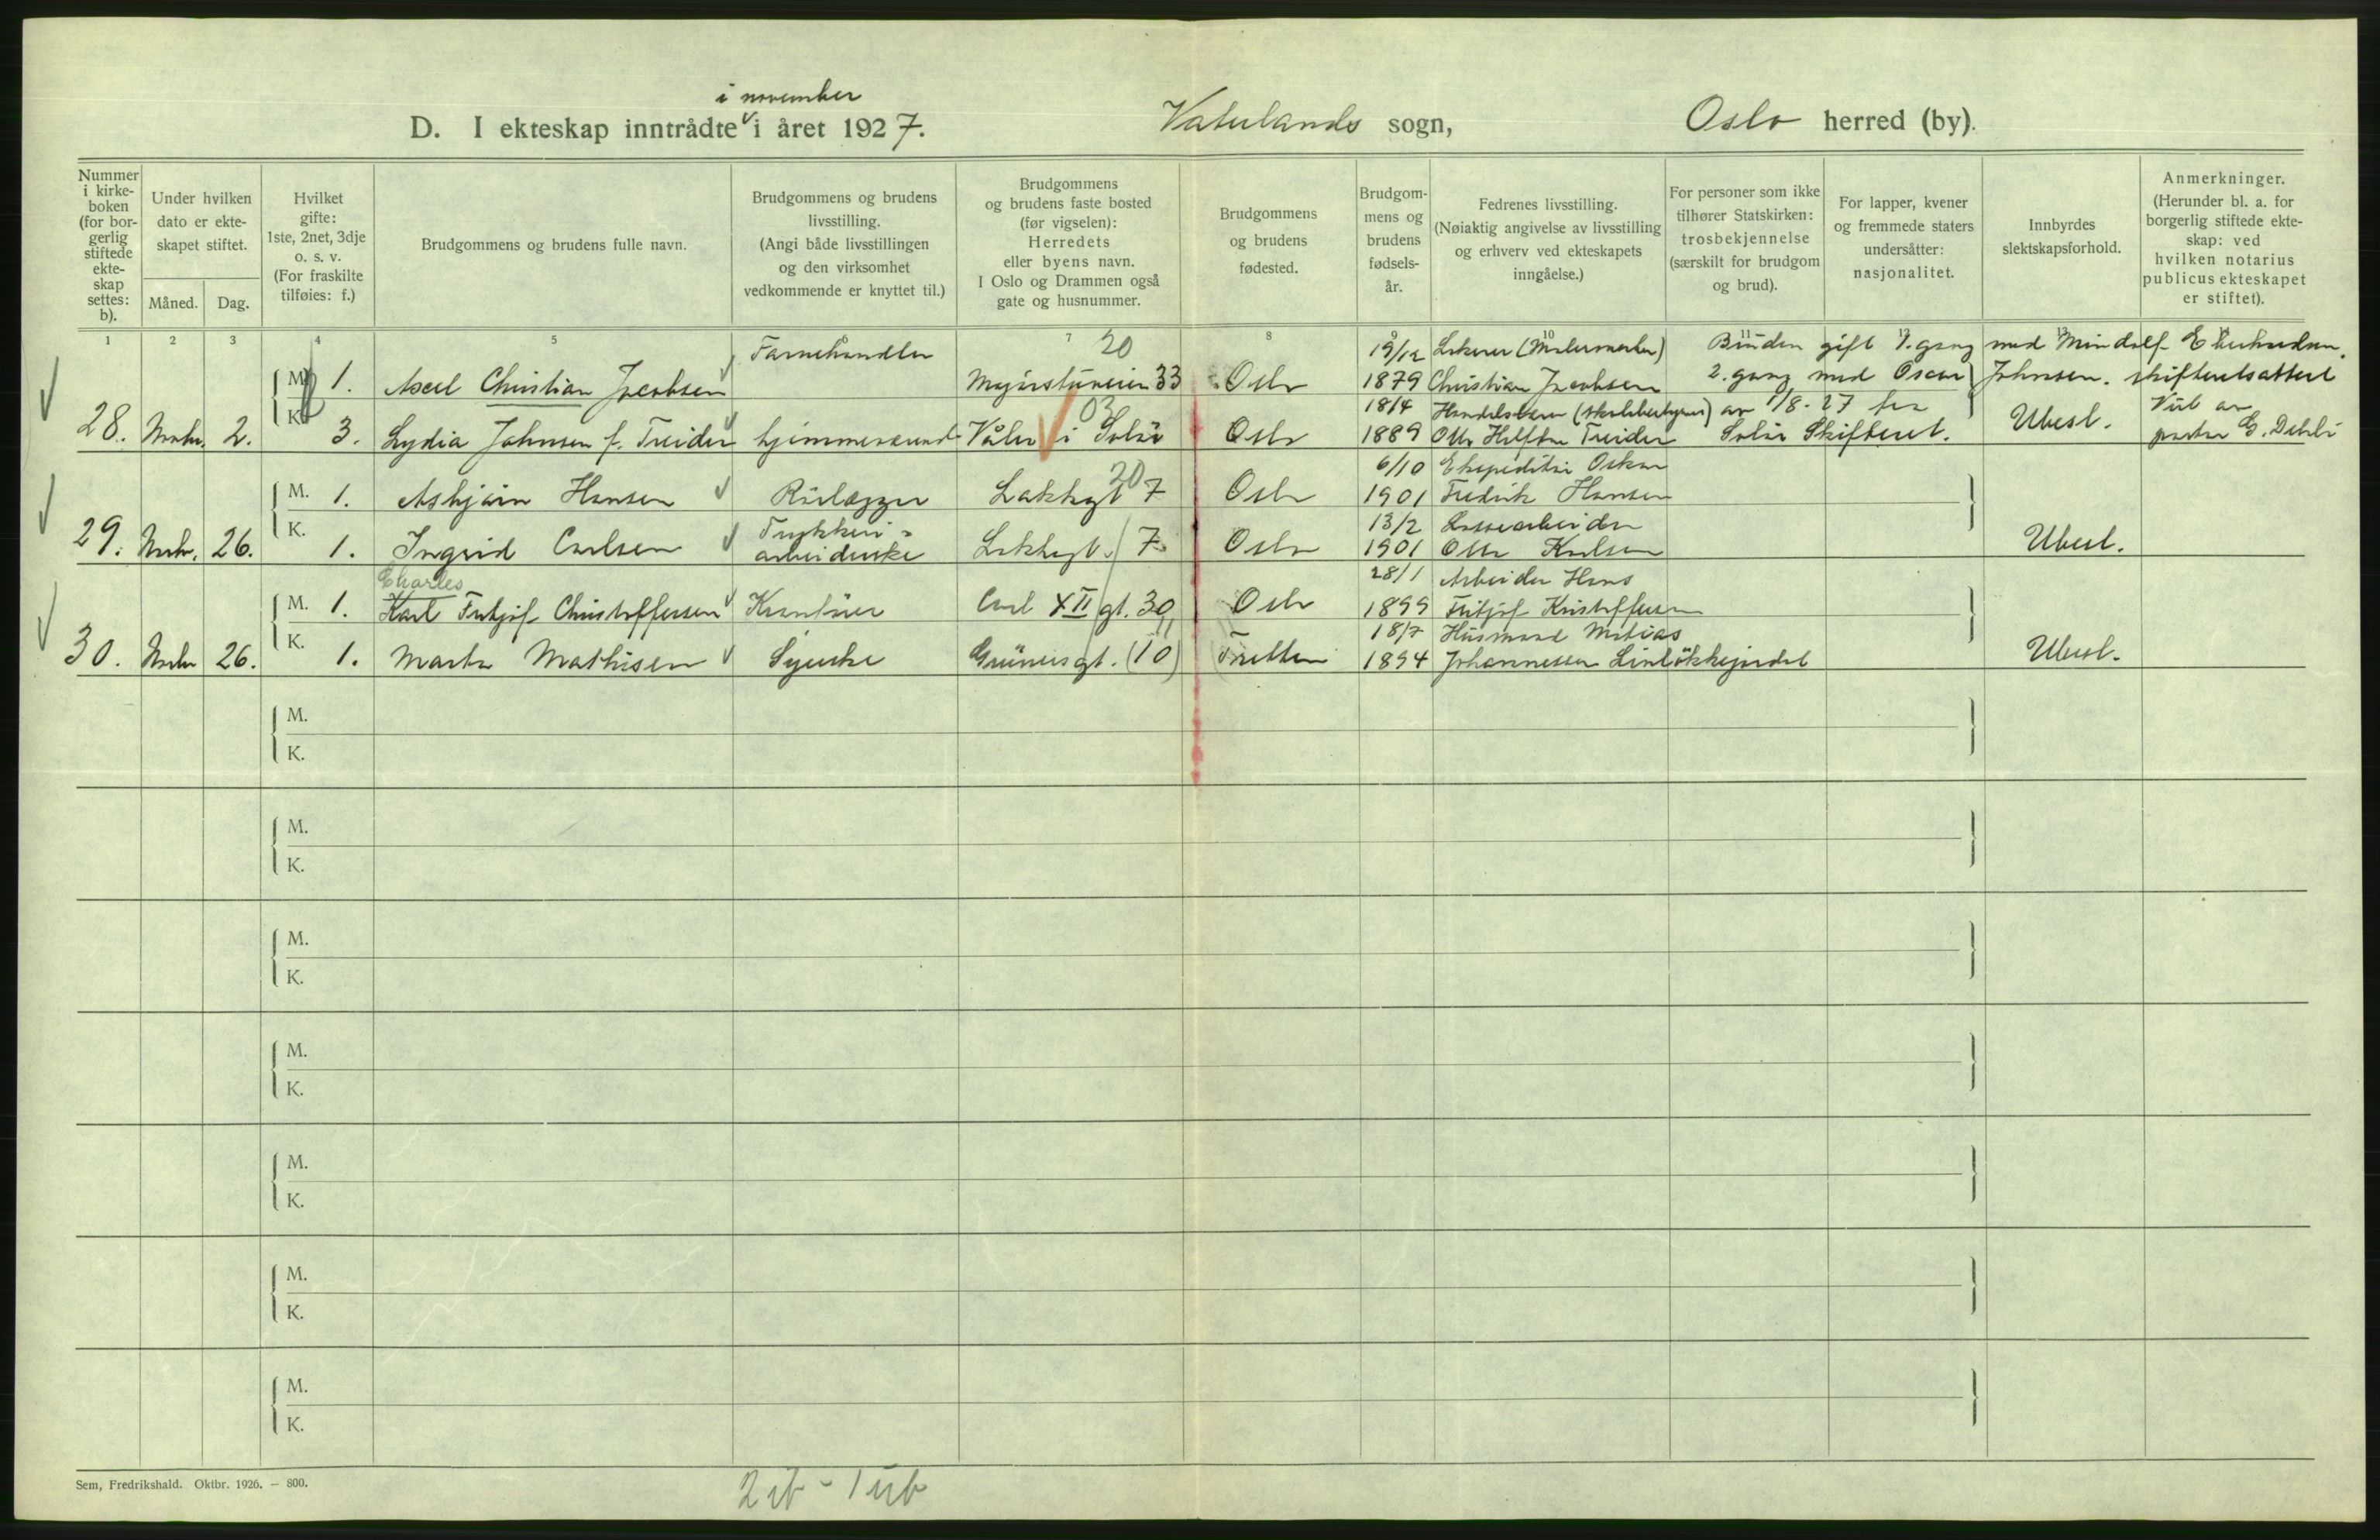 i november
D. I ekteskap inntrådte i året 1927. Vaterlands sogn, Oslo herred (by).
Nummer i kirke- boken (for bor- gerlig stiftede ekte- skap settes: b).
Under hvilken dato er ekte- skapet stiftet.
Måned. Dag.
Hvilket gifte: 1ste, 2net, 3dje o. s. v. (For fraskilte tilføies: f.)
Brudgommens og brudens fulle navn.
Brudgommens og brudens livsstilling. (Angi både livsstillingen og den virksomhet vedkommende er knyttet til.)
Brudgommens og brudens faste bosted (før vigselen): Herredets eller byens navn. I Oslo og Drammen også gate og husnummer.
Brudgommens og brudens fødested.
Brudgom- mens og brudens fødsels- år.
Fedrenes livsstilling. (Nøiaktig angivelse av livsstilling og erhverv ved ekteskapets inngåelse.)
For personer som ikke tilhører Statskirken: trosbekjennelse (særskilt for brudgom og brud).
For lapper, kvener og fremmede staters undersåtter: nasjonalitet.
Innbyrdes slektskapsforhold.
Anmerkninger. (Herunder bl. a. for borgerlig stiftede ekte- skap: ved hvilken notarius publicus ekteskapet er stiftet).
1 2 3 4 5 6 7 8 9 10 11 12 13
Farvehandler 20 19/12 Lakerer (Malermester) Bruden gift 1. gang med
M. 1. Axel Christian Jacobsen Majorstuveien 33 Oslo 1879 Christian Jacobsen 2. gang med Oscar Johnsen. skifteretsattest
03 18/4 av 1/8-27 fra
28. Novbr. 2. K. 3. Lydia Johnsen f. Treider hjemmeværende Våler i Solør Oslo 1889 Otto Treider Solør Skifteret. Ubesl. Viet av pastor
20 6/10 Ekspeditør Oskar
M. 1. Asbjørn Hansen Rørlegger Lakkegt 7 Oslo 1901 Fredrik Hansen
Trykkeri- 13/2
29. Novbr. 26. K. 1. Ingrid Carlsen arbeiderske Lakkegt. 7 Oslo 1901 Otto Karlsen Ubesl.
Charles 28/1 Arbeider Hans
M. 1. Karl Fritjof Christoffersen Kranfører Carl XII gt. 30 Oslo 1899 Fritjof Kristoffersen
11 18/7 Husmand Matias
30. Novbr 26. K. 1. Marta Mathisen Syerske Grüners gt. (10) Tretten 1894 Johannessen Ubesl.
M.
K.
M.
K.
M.
K.
M.
K.
M.
K.
M.
K.
M.
K.
Sem, Fredrikshald. Oktbr. 1926. — 800.
2 ib - 1 ub